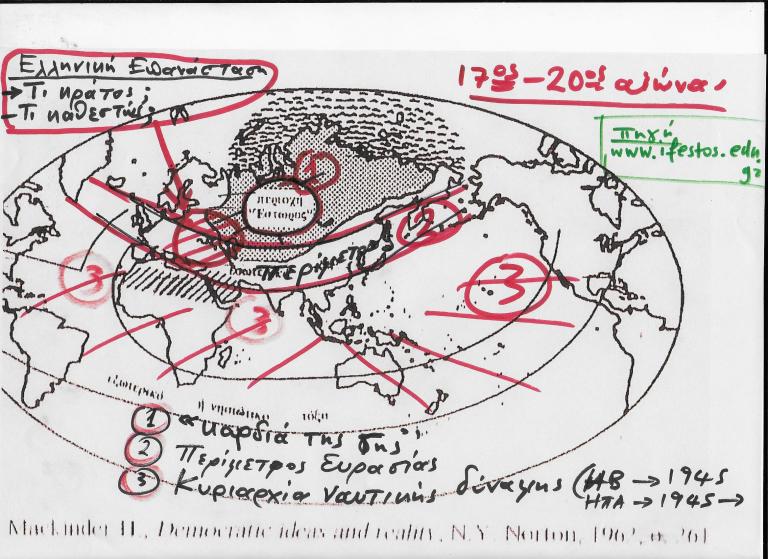 Ελληνική Επανάσταση
→ Τι κράτος;
- Τι καθεστώς;
17ος – 20ος αιώνας
πηγή
www.ifestos.edu.
gr
1
περιοχή
"Εστωρος"
2
Περίμετρος
3
3
3
εξωτερικό ή νησιωτικό τόξο
1 "καρδιά της Γης"
2 Περίμετρος Ευρασίας
3 Κυριαρχία ναυτικής δύναμης (ΗΒ → 1945
ΗΠΑ → 1945 →
Mackinder H., Democratic ideas and reality, N.Y. Norton, 1962, σ. 261